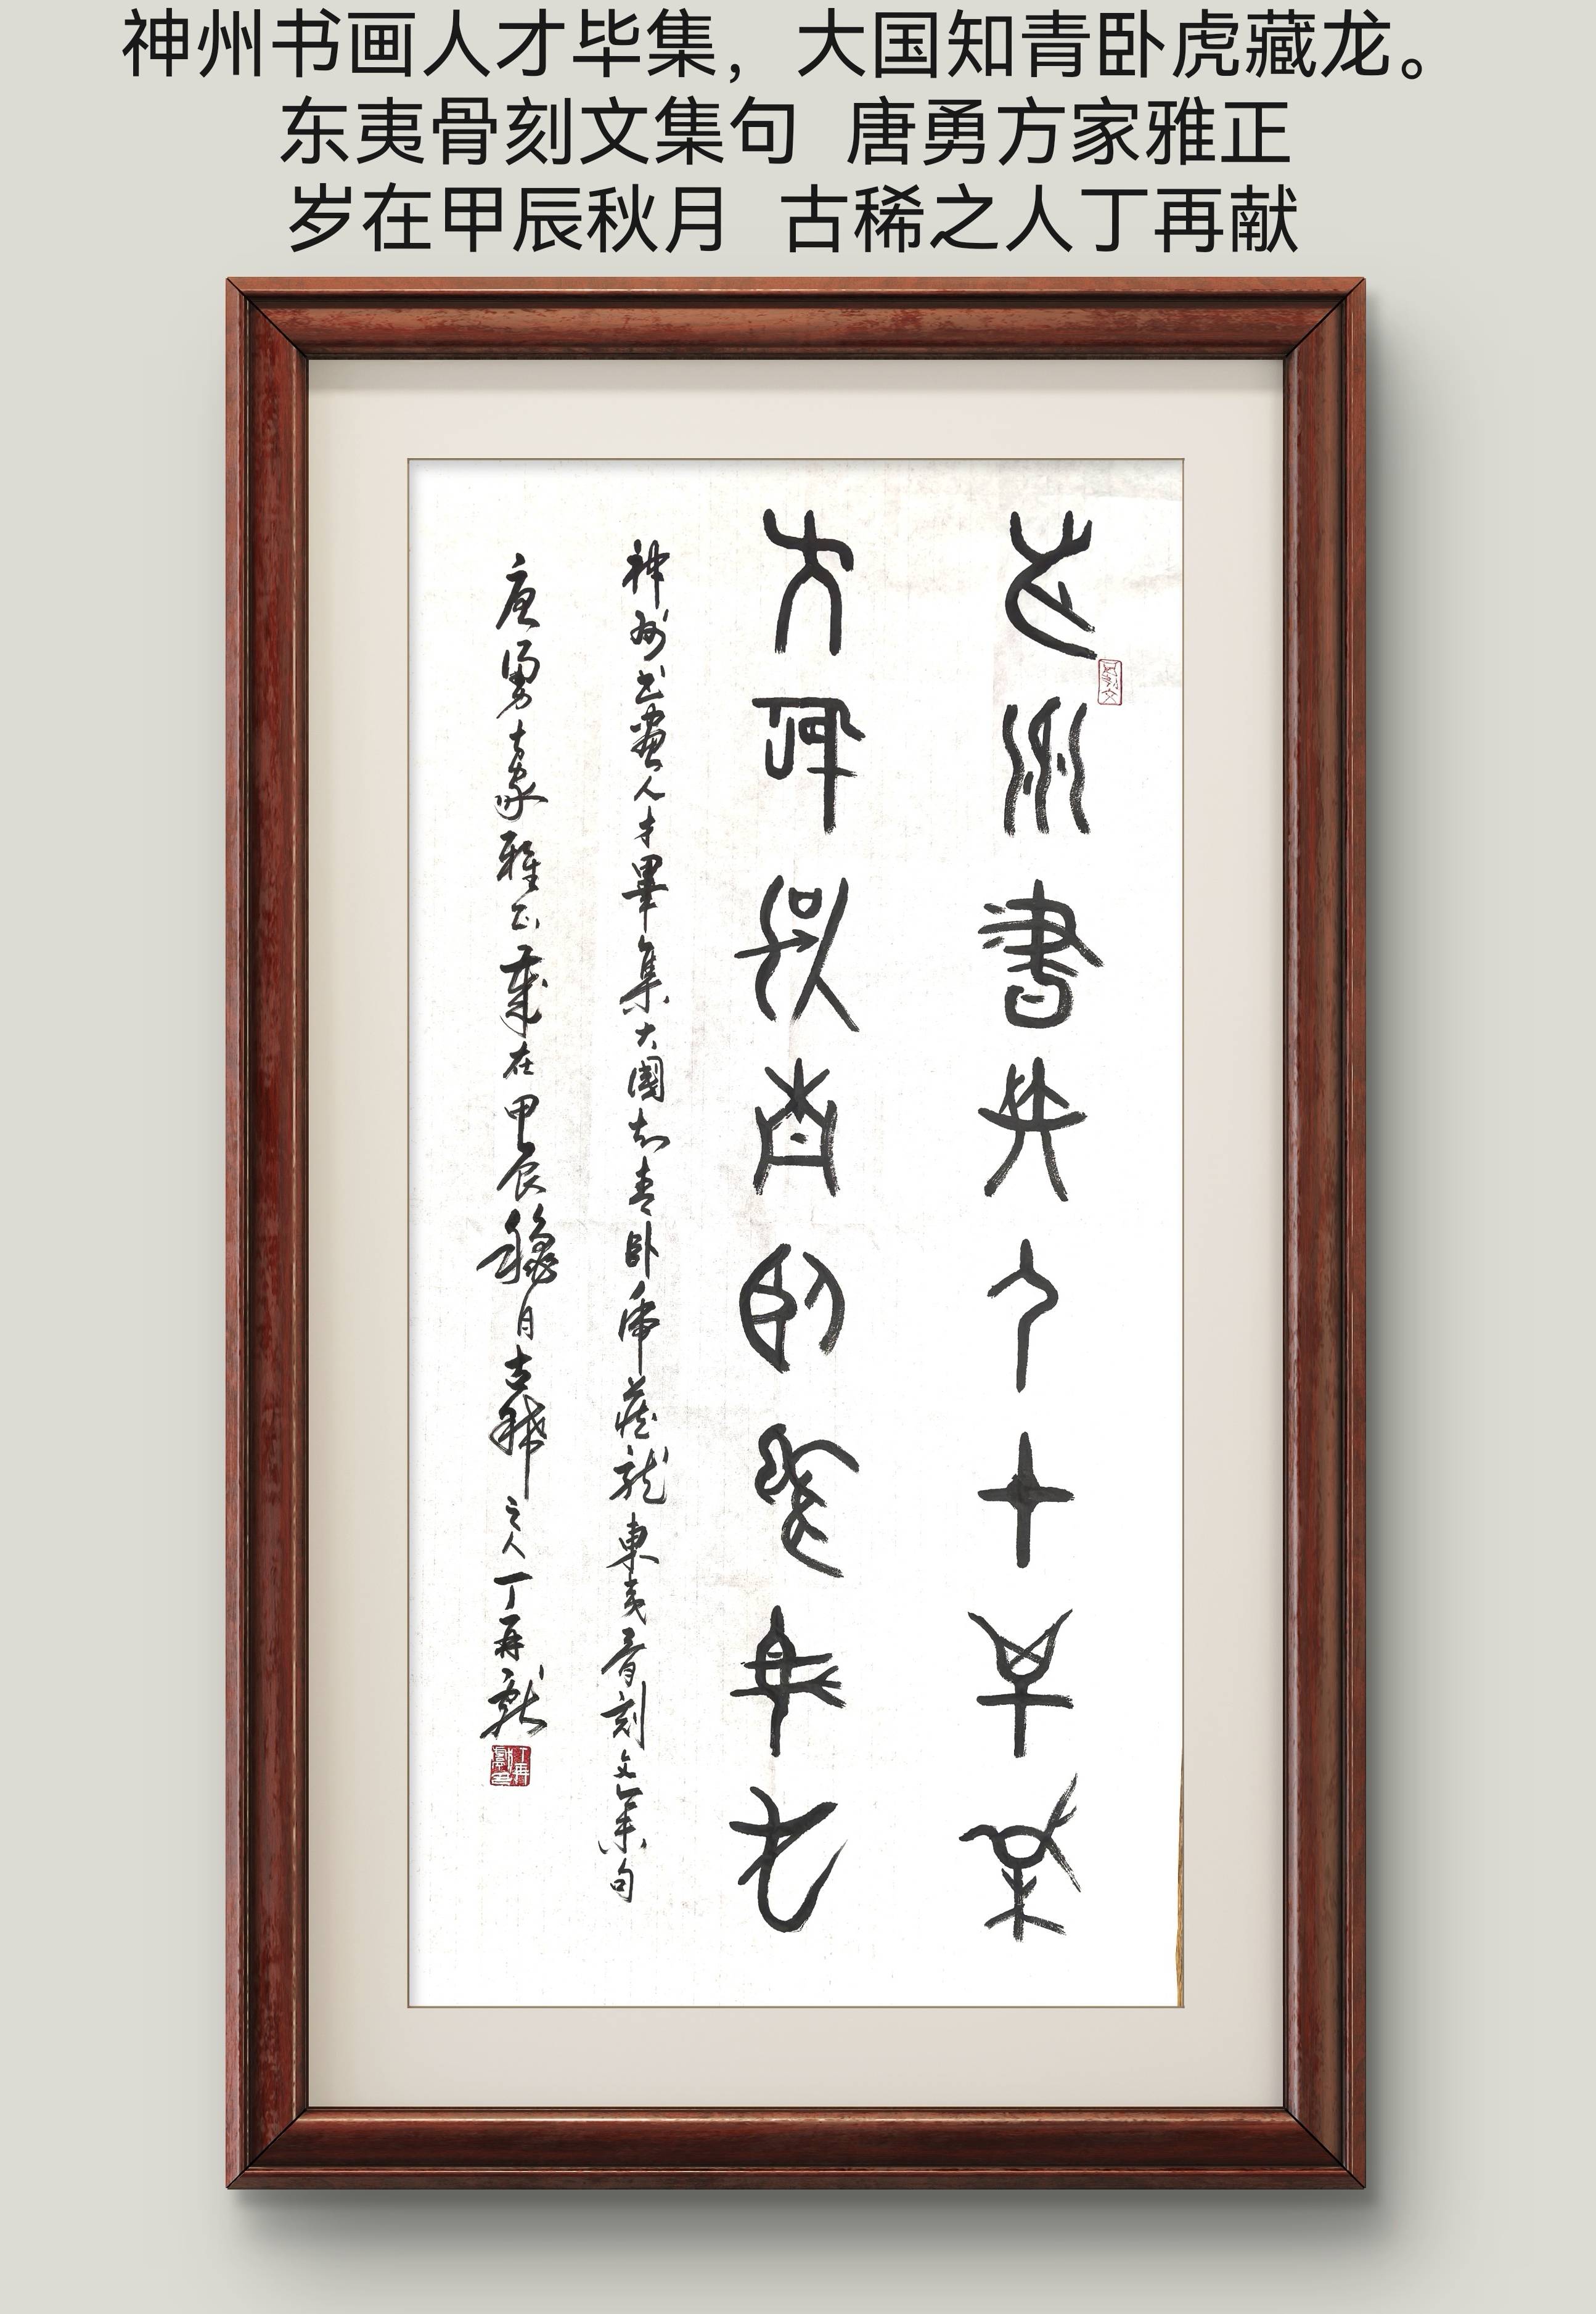 神州书画人才毕集，大国知青卧虎藏龙。
东夷骨刻文集句 唐勇方家雅正
岁在甲辰秋月 古稀之人丁再献
神州書畫人才畢集
大國知青臥虎藏龍
神州书畫人才畢集大國知青卧虎藏龍東夷骨刻文集句
唐勇方家雅正歲在甲辰龝月古稀之人丁再献
骨刻文
丁再献